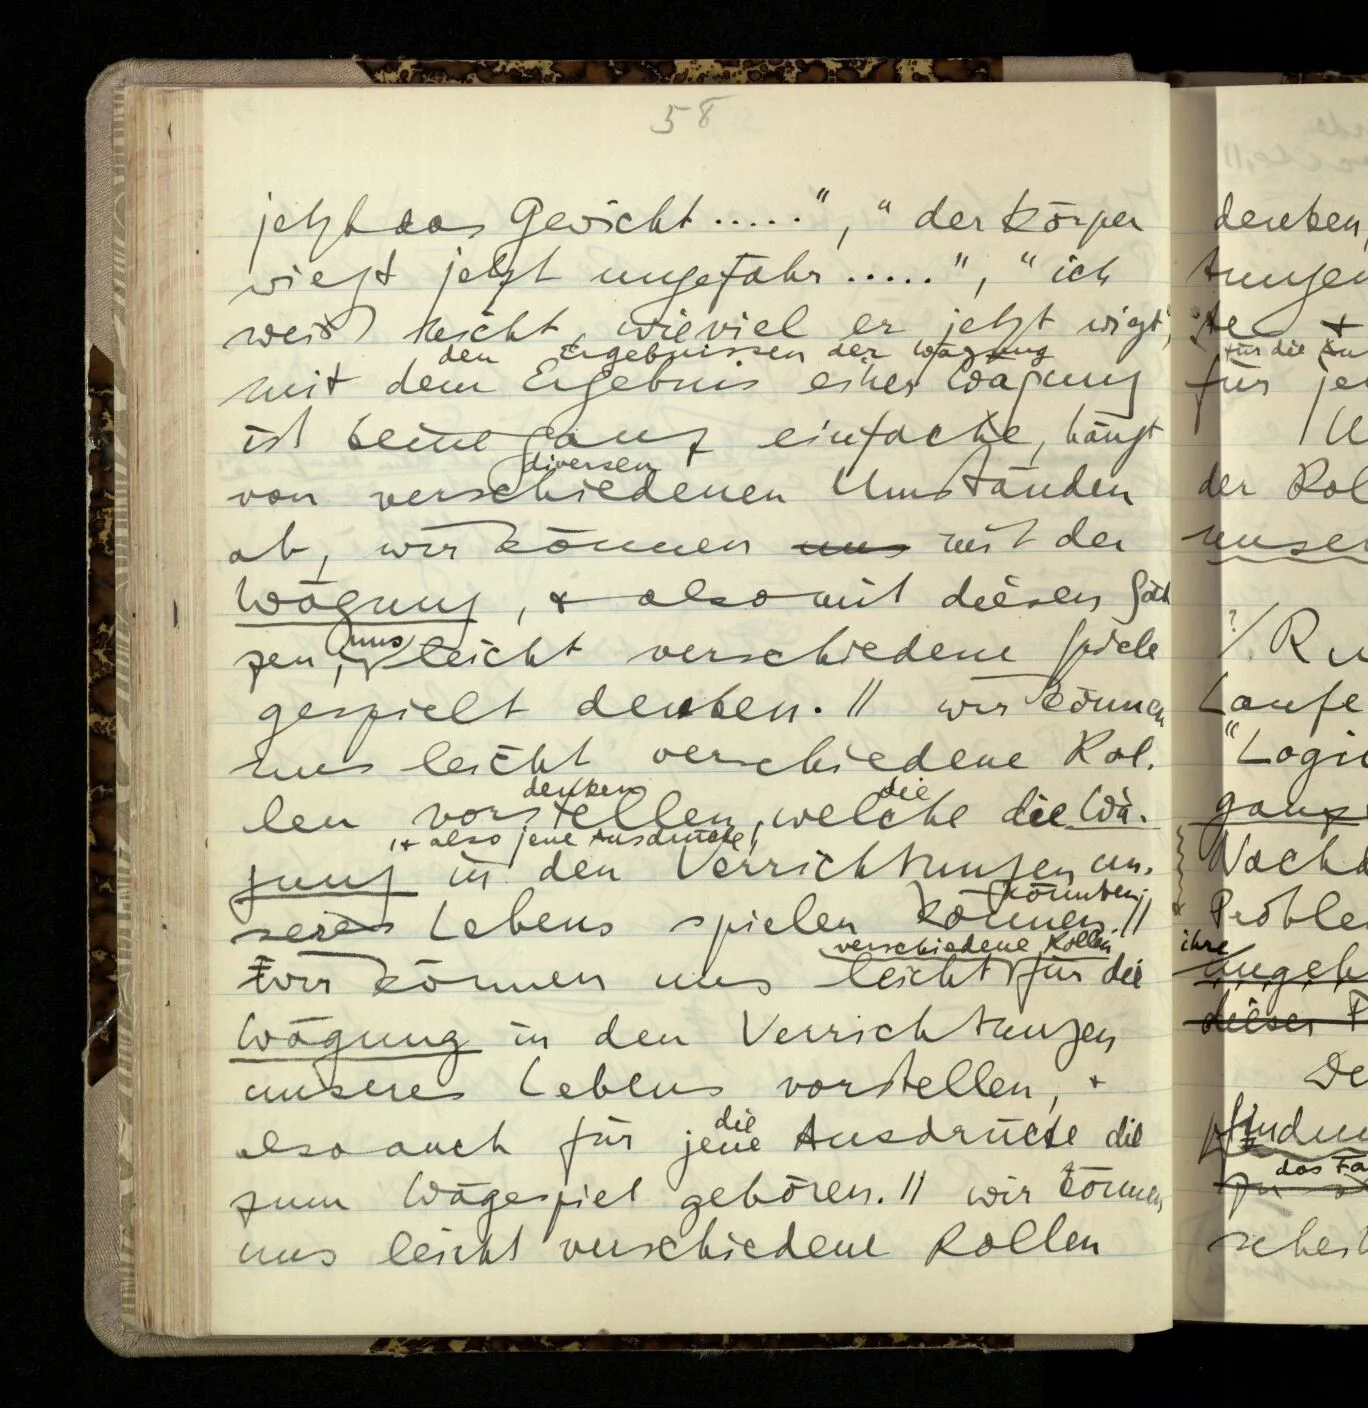 58
jetzt das Gewicht ....." , " der Körper
wiegt jetzt ungefähr ....." , " ich
weiß nicht, wieviel er jetzt wiegt",
den Ergebnissen der Wägung
mit dem Ergebnis einer Wägung
ist keine ganz einfache, hängt
diversen
von verschiedenen Umständen
ab, wir können uns mit der
Wägung, & also mit diesen Sät
zen, uns leicht verschiedene Spiele
gespielt denken. || wir können
uns leicht verschiedene Rol-
denken die
len vorstellen, welche die Wä-
, & also jene Ausdrücke,
gung in den Verrichtungen un-
könnten.
seres Lebens spielen können. ||
verschiedene Rollen
Wir können uns leicht für die
Wägung in den Verrichtungen
unseres Lebens vorstellen, &
die
also auch für jene Ausdrücke die
zum Wägespiel gehören. || wir können
uns leicht verschiedene Rollen
denken,
für die
für
der Rol
unser
Laufe
"Logi
ganz
Nachd
Proble
ihre
angeb
dieser P
De
finden
das Fa
zu